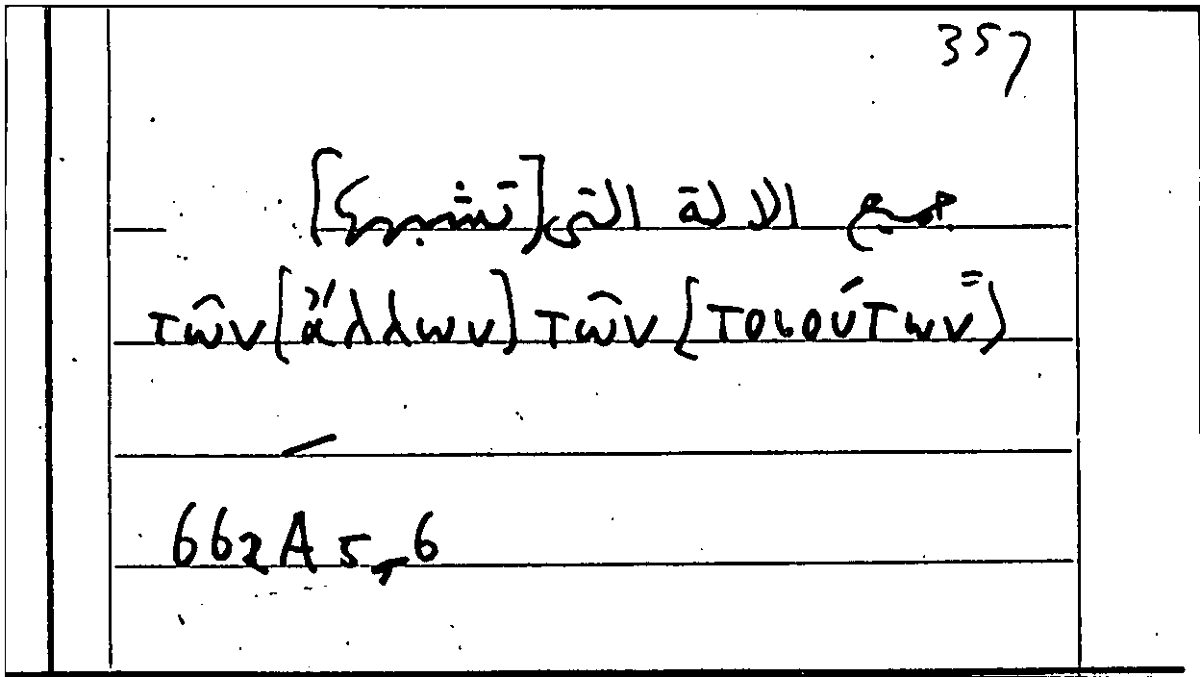 357
جميع الالة التى [
τῶν [ἄλλων] τῶν [τοιούτων]
662A5,6